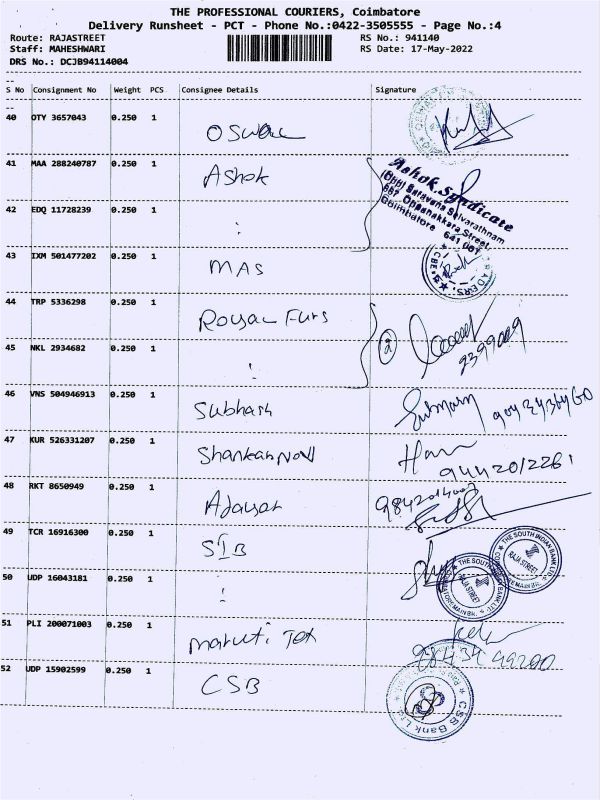 THE PROFESSIONAL COURIERS, Coimbatore
Delivery Runsheet - PCT - Phone No.:0422-3505555 - Page No.:4
Route: RAJASTREET RS No.: 941140
Staff: MAHESHWARI RS Date: 17-May-2022
DRS No.: DCJB94114004
S No Consignment No Weight PCS Consignee Details Signature
40 OTY 3657043 0.250 1
41 MAA 288240787 0.250 1 Ashok
Ashok Syndicate
(Opp) Saravana Selvarathnam
Oppanakkara Street,
Coimbatore 641 001
42 EDQ 11728239 0.250 1 :
43 IXM 501477202 0.250 1 MAS
CBE
44 TRP 5336298 0.250 1 Royal Furs
45 NKL 2934682 0.250 1 : 2
46 VNS 504946913 0.250 1 Subhash
47 KUR 526331207 0.250 1
9442012261
48 RKT 8650949 0.250 1
49 TCR 16916300 0.250 1 SIB
THE SOUTH INDIAN BANK LTD.
RAJA STREET
50 UDP 16043181 0.250 1 :
THE SOUTH INDIAN BANK LTD.
RAJA STREET
51 PLI 200071003 0.250 1 Maruti Tex
52 UDP 15902599 0.250 1 CSB
CSB Bank Ltd